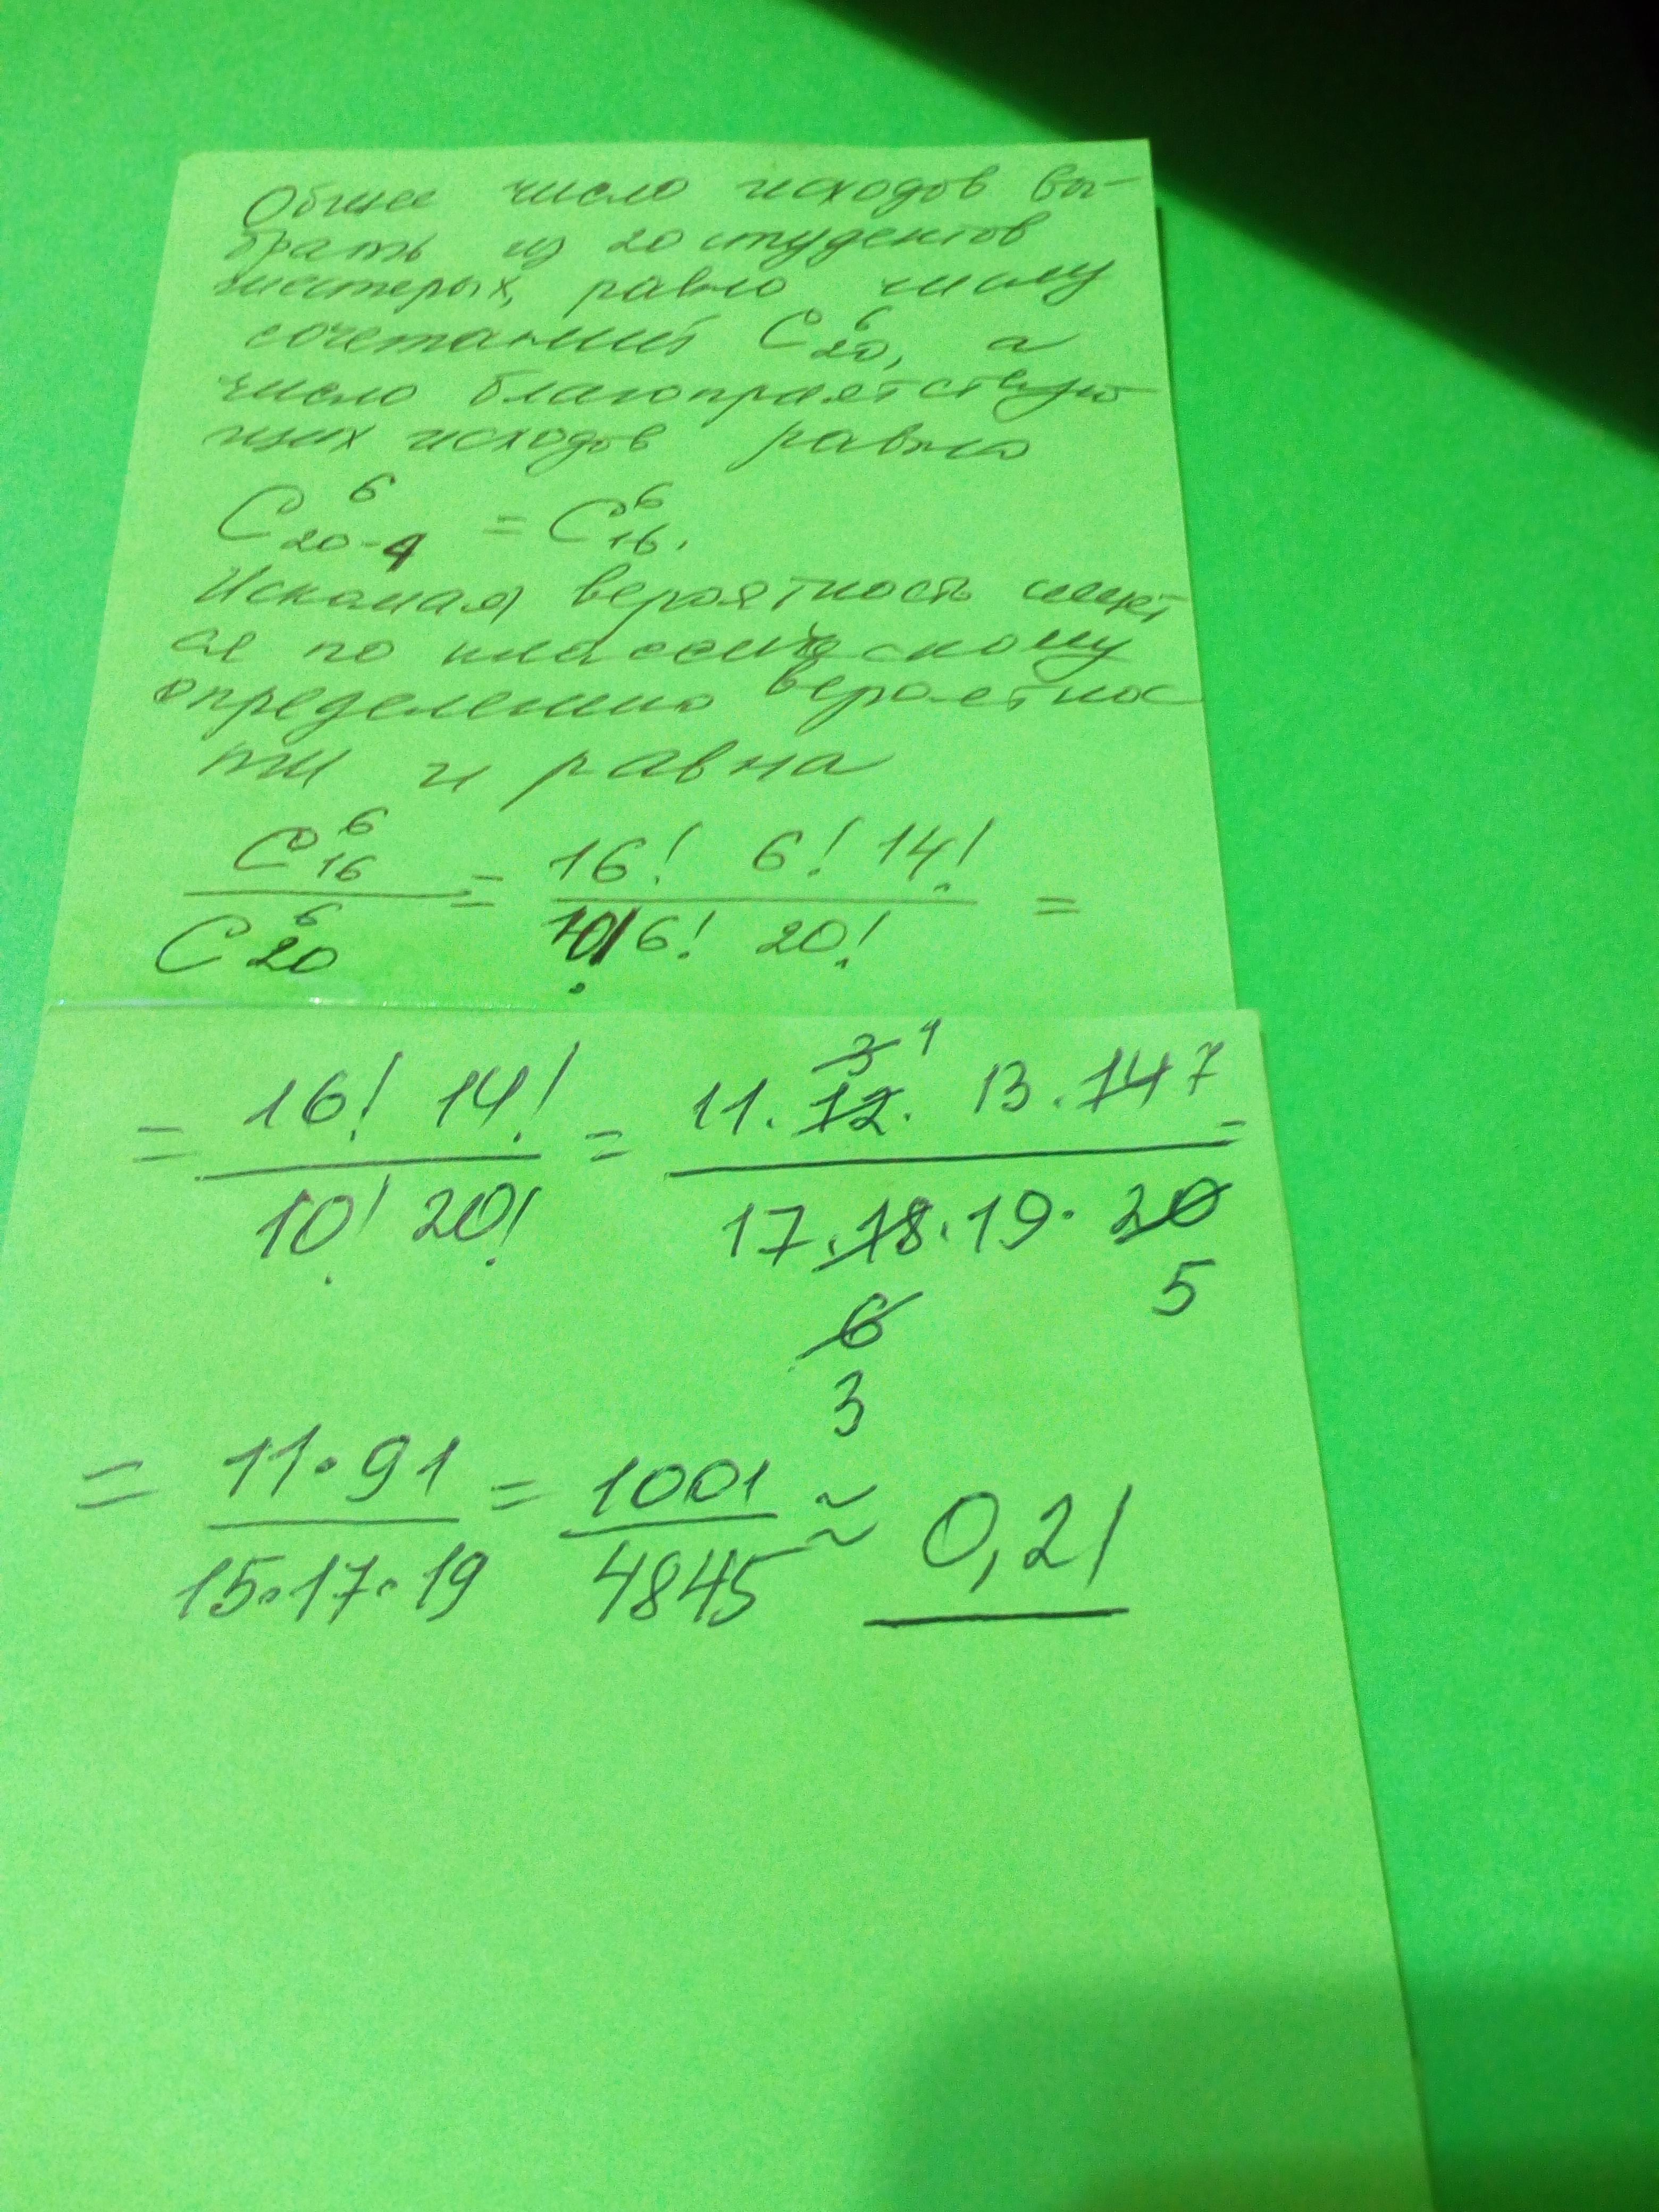 Общее число исходов вы-
брать из 20 студентов
шестерых, равно числу
сочетаний C₂₀⁶, а
число благоприятствую
щих исходов равно
C₂₀₋₄⁶ = C₁₆⁶.
Искомая вероятность ищет
ся по классическому
определению вероятнос
ти и равна
C₁₆⁶ / C₂₀⁶ = 16! 6! 14! / 10! 6! 20! =
= 16! 14! / 10! 20! = 11 · 12 3 1 · 13 · 14 7 / 17 · 18 6 3 · 19 · 20 5 =
= 11 · 91 / 15 · 17 · 19 = 1001 / 4845 ≈ 0,21